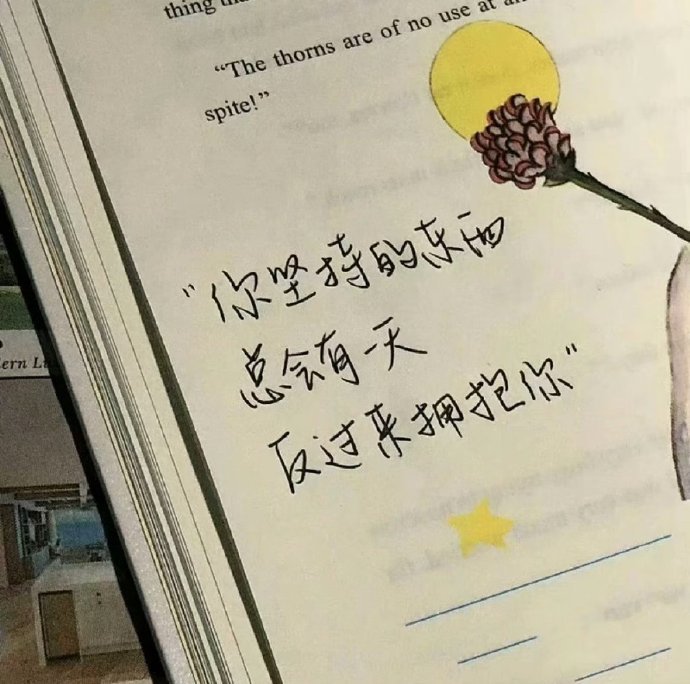 thing
“The thorns are of no use at
spite!”
“你坚持的东西
总会有一天
反过来拥抱你”
ern